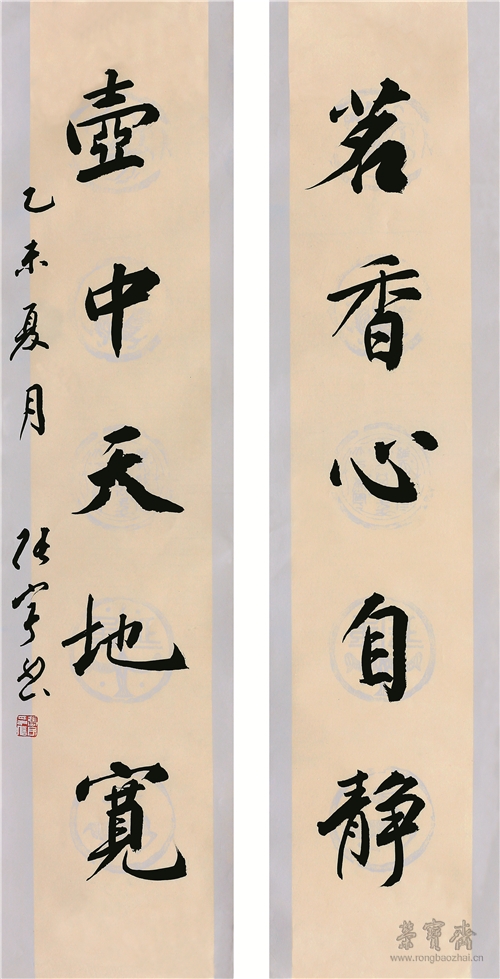 茗香心自静
壶中天地寬
乙未夏月
张宁书
荣寶齋
www.rongbaozhai.cn